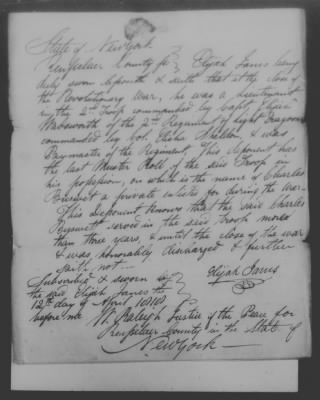 State of New York
Rensselaer County ss Elijah Janes being
duly sworn deposeth & saith that at the close of
the Revolutionary War, he was a Lieutenant
in the 2d Troop commanded by Capt.
Wadsworth of the 2d Regiment of Light Dragoons
commanded by Col. Elisha Sheldon, & was
Paymaster of the Regiment. This Deponent has
the last Muster Roll of the said Troop in
his possession, on which is the name of Charles
a private enlisted for during the war.
This Deponent knows that the said Charles
served in the said troop more
than three years, & until the close of the war
& was honorably discharged & further
saith not
Elijah Janes
Subscribed & sworn by
the said Elijah Janes the
12th day of April
before me W. Raleigh Justice of the Peace for
Rensselaer County in the State of
New York